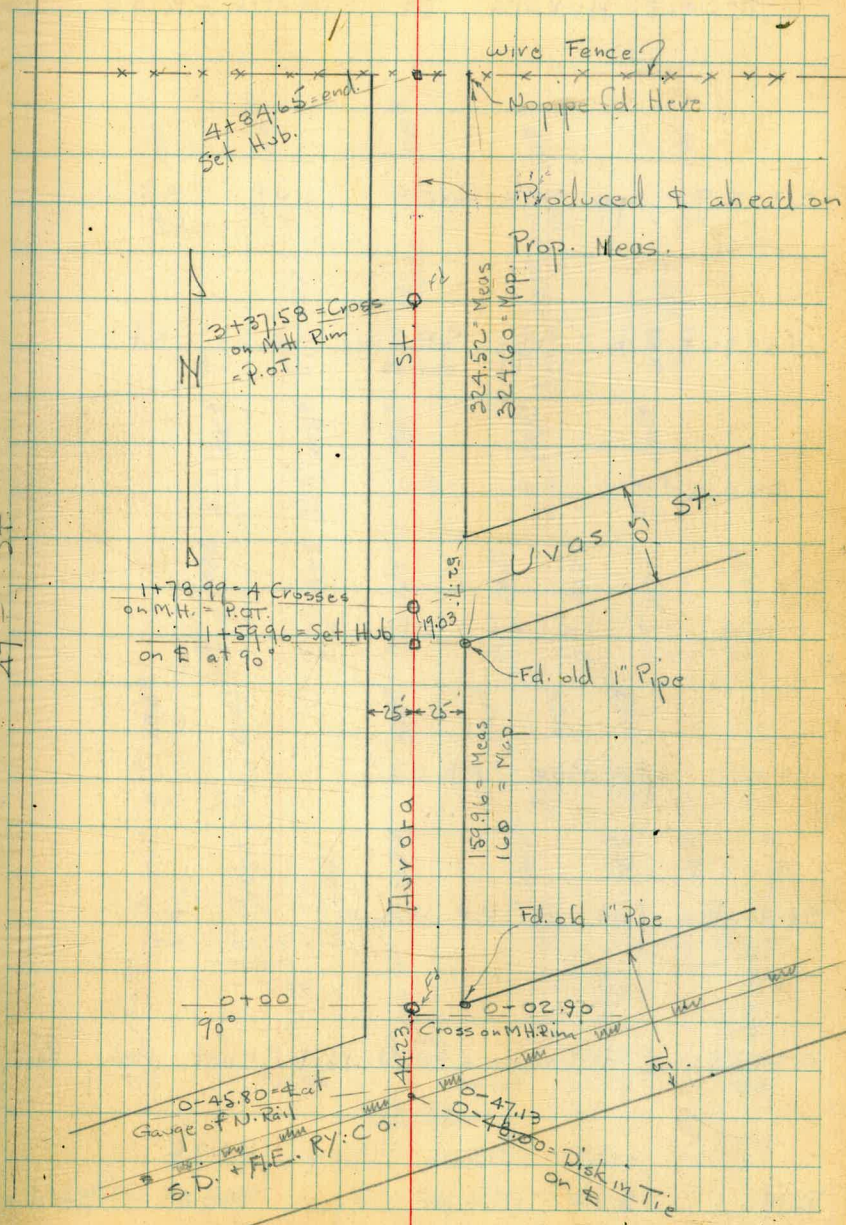 Wire Fence
No pipe Fd. Here
4+84.65 = end.
Set Hub.
Produced ℄ ahead on
Prop. Meas.
3+37.58 = Cross
on M.H. Rim
= P.O.T.
N
St.
324.52 = Meas
324.60 = Map.
Uvas St.
50
1+78.99 = A Crosses
on M.H. = P.O.T.
1+59.96 = Set Hub
on ℄ at 90°
19.03
Fd. old 1" Pipe
25' 25'
159.96 = Meas
160 = Map.
Aurora
Fd. old 1" Pipe
0+00
90°
0-02.90
Cross on M.H. Rim
44.23
75
0-45.80 = ℄ at
Gauge of N. Rail
S.D. + A.E. RY. CO.
0-47.13
0-48.00 = Disk in Tie
on ℄